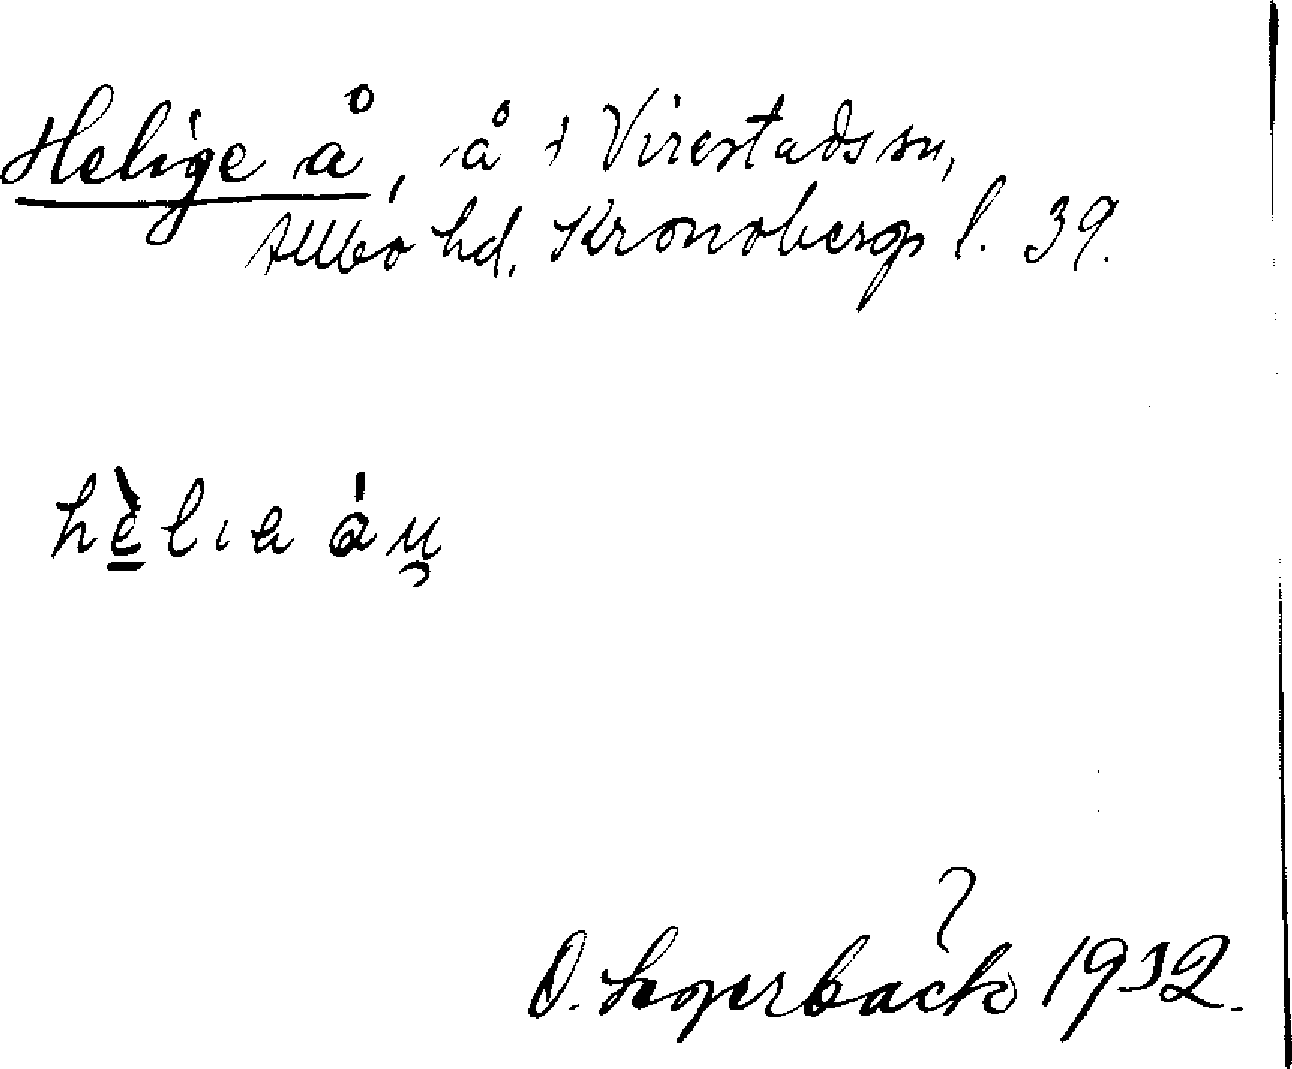 Helige å, å i Virestads sn,
Allbo hd. Kronobergs l. 39.
hèlia áu̯
O. Lagerbäck 1932.